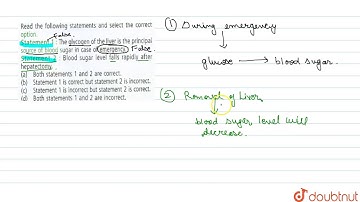 Read the following statements and select the correct
option. False
Statement 1 : The glycogen of the liver is the principal
source of blood sugar in case of emergency. False.
Statement 2 : Blood sugar level falls rapidly after
hepatectomy.
(a) Both statements 1 and 2 are correct.
(b) Statement 1 is correct but statement 2 is incorrect.
(c) Statement 1 is incorrect but statement 2 is correct.
(d) Both statements 1 and 2 are incorrect.
① During emergency
glucose → blood sugar.
② Removal of Liver
blood sugar level will
decrease.
doubtnut